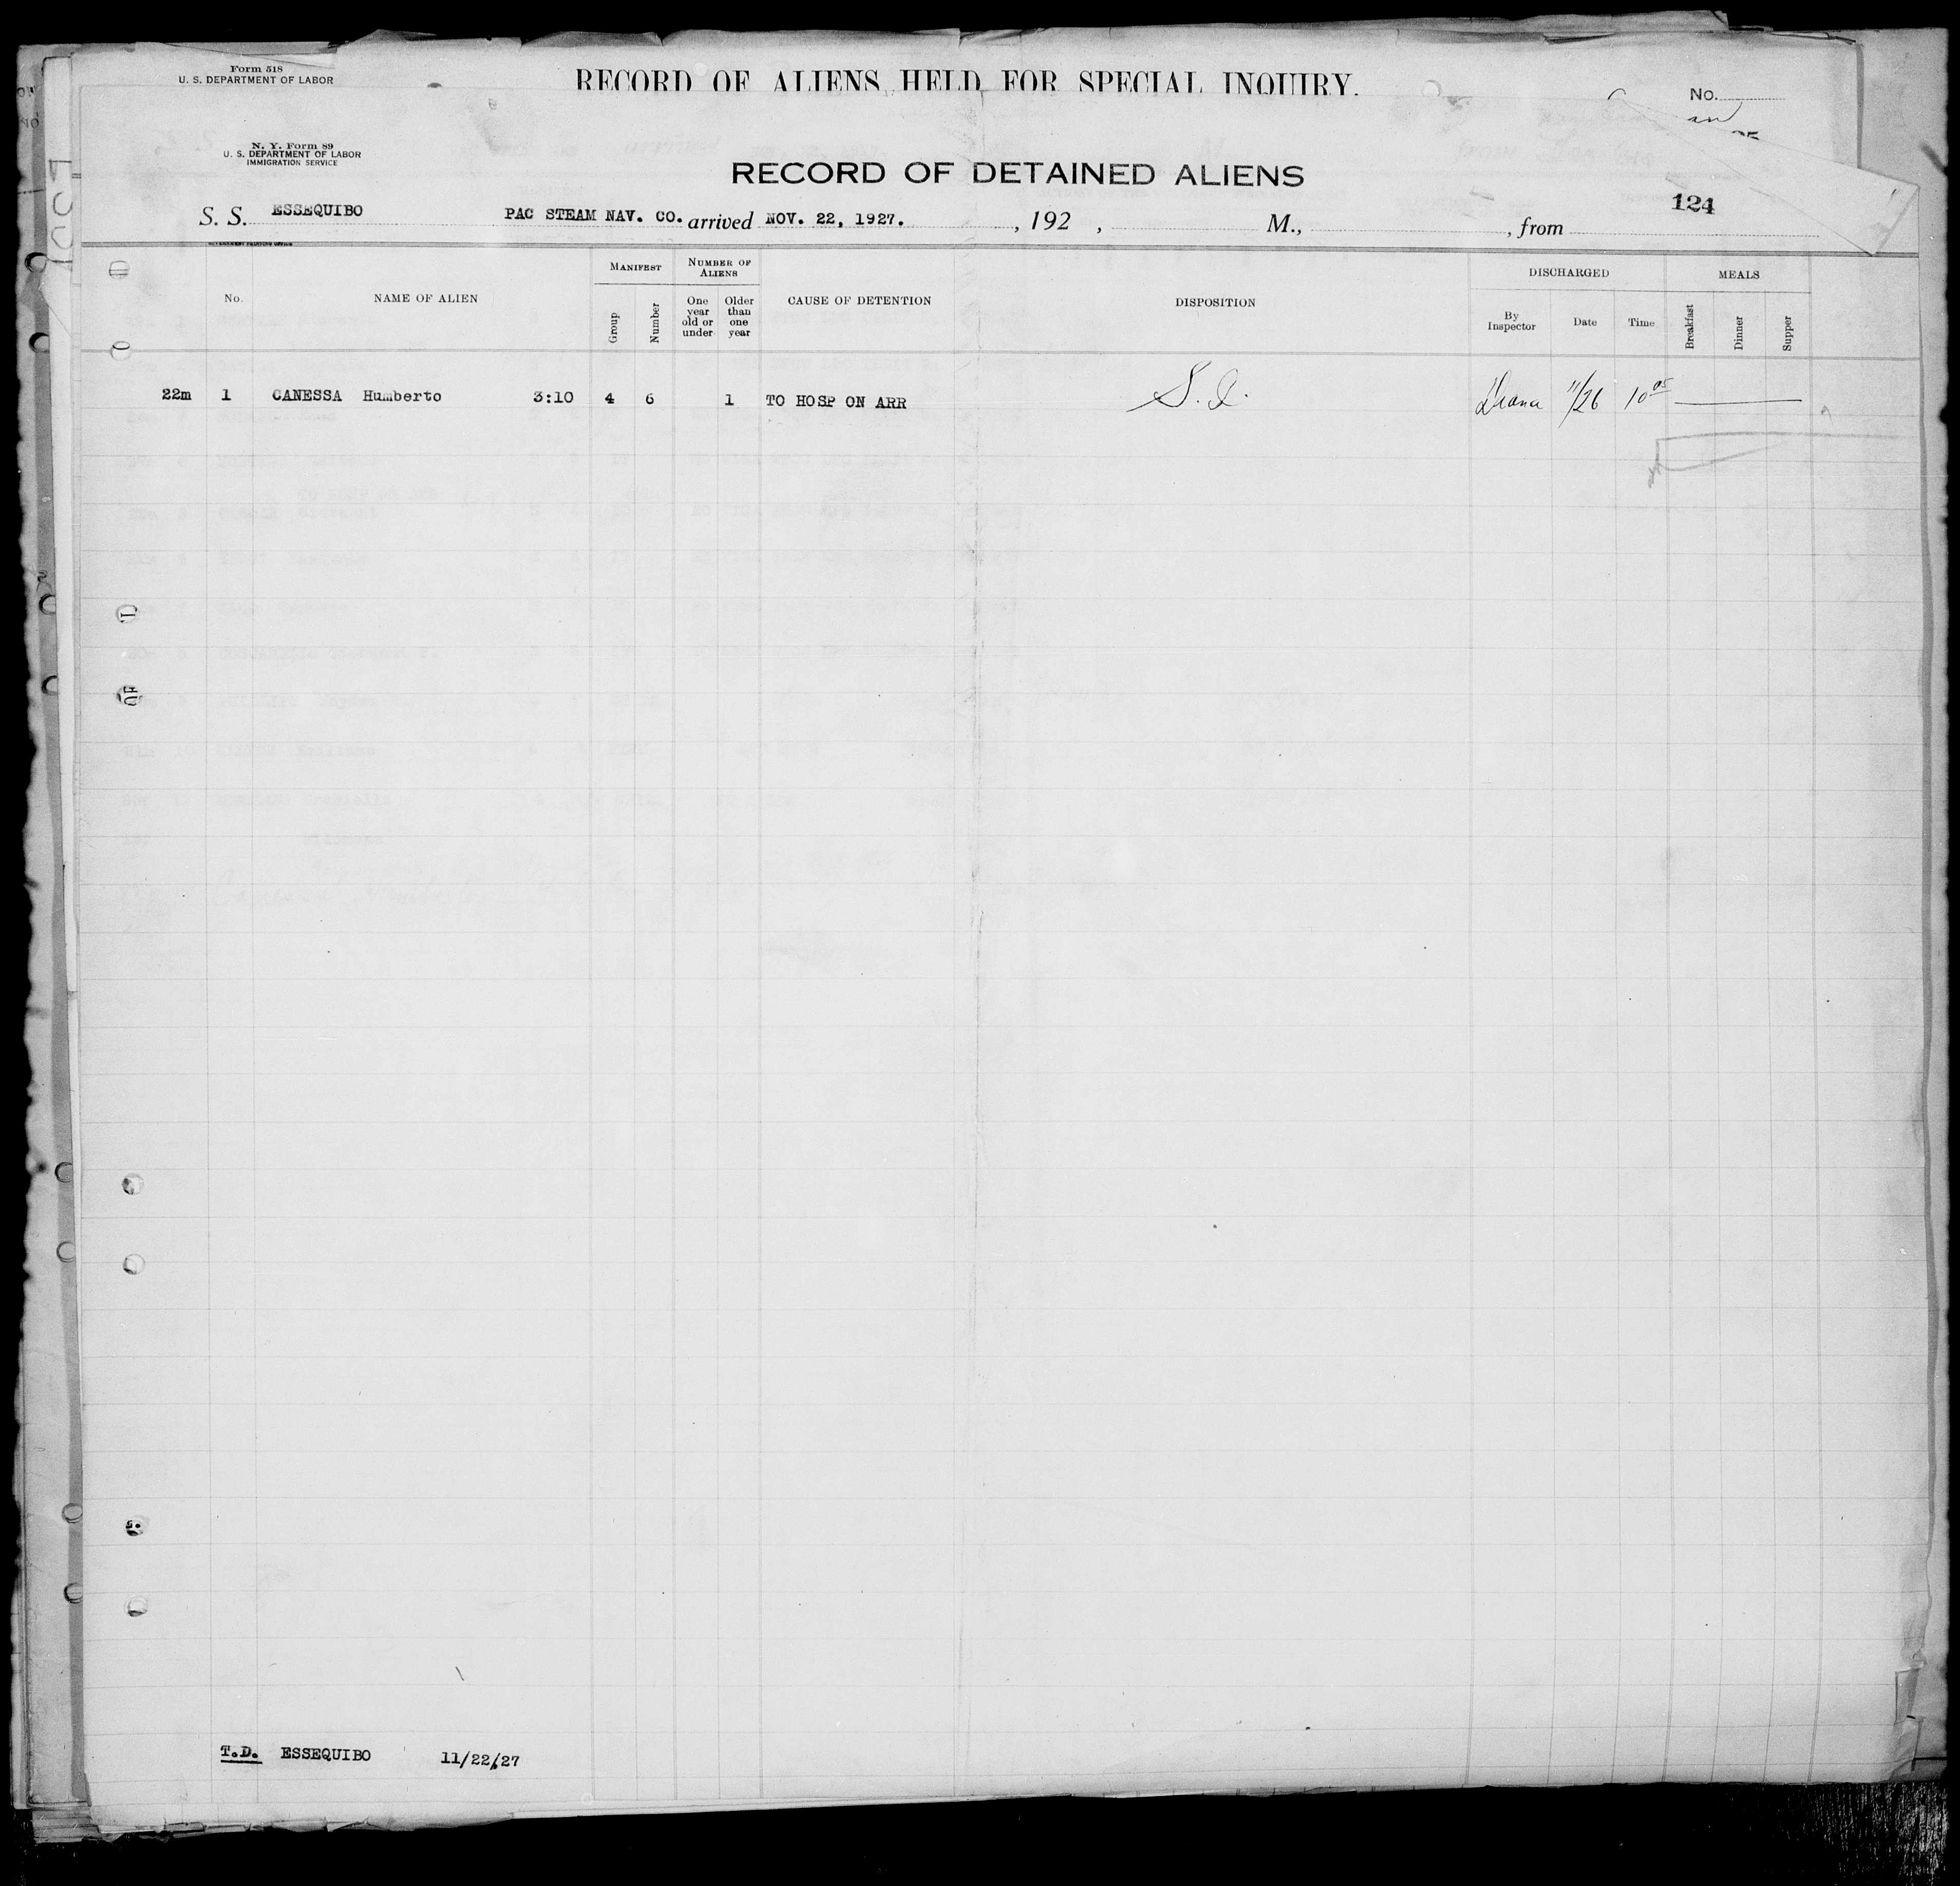 Form 518
U. S. DEPARTMENT OF LABOR
RECORD OF ALIENS HELD FOR SPECIAL INQUIRY.
No.
and
N. Y. Form 89
U. S. DEPARTMENT OF LABOR
IMMIGRATION SERVICE
RECORD OF DETAINED ALIENS
124
S. S. ESSEQUIBO PAC STEAM NAV. CO. arrived NOV. 22, 1927. , 192 , M., , from
GOVERNMENT PRINTING OFFICE
No. NAME OF ALIEN MANIFEST NUMBER OF ALIENS CAUSE OF DETENTION DISPOSITION DISCHARGED MEALS
Group Number One year old or under Older than one year By Inspector Date Time Breakfast Dinner Supper
22m 1 CANESSA Humberto 3:10 4 6 1 TO HOSP ON ARR S. I. 11/26 10 05
T.D. ESSEQUIBO 11/22/27